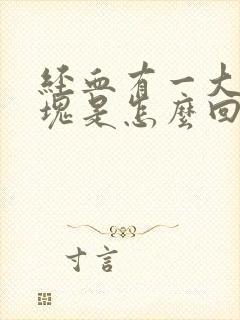 经血有一大
塊是怎麼回
寸言